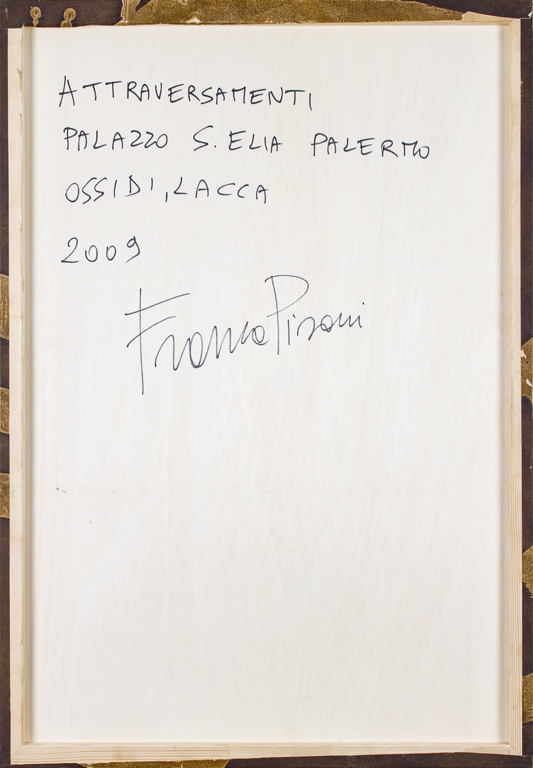 ATTRAVERSAMENTI
PALAZZO S. ELIA PALERMO
OSSIDI, LACCA
2009
Franco Pisani